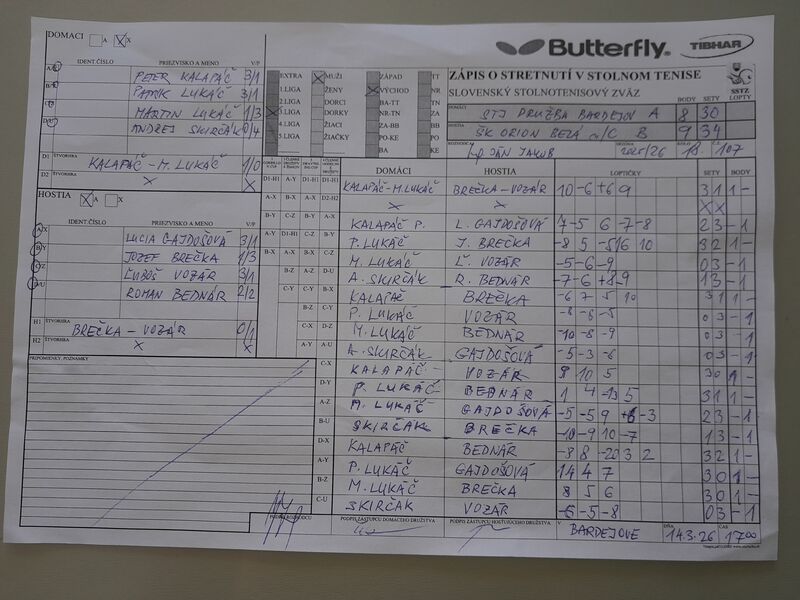 DOMACI A X
Butterfly
TIBHAR
IDENT.ČÍSLO PRIEZVISKO A MENO V/P
PETER KALAPÁČ 3/1
PATRIK LUKÁČ 3/1
MARTIN LUKÁČ 1/3
ANDREJ SKIRČÁK 0/4
ŠTVORHRA
KALAPÁČ-M.LUKÁČ 1/0
D2 ŠTVORHRA
X X
EXTRA X MUŽI ZÁPAD TT
1.LIGA ŽENY X VÝCHOD NR
2.LIGA DORCI BA-TT TN
3.LIGA DORKY NR-TN ZA
4.LIGA ŽIACI ZA-BB BB
5.LIGA ŽIAČKY PO-KE PO
BA KE
ZÁPIS O STRETNUTÍ V STOLNOM TENISE
SLOVENSKÝ STOLNOTENISOVÝ ZVÄZ
SSTZ
BODY SETY LOPTY
DOMÁCI STJ DRUŽBA BARDEJOV A 8 30
HOSTIA ŠK ORION B 9 34
ROZHODCA JÁN JAKUB 2025/26 18. 107
HOSTIA X A B
IDENT.ČÍSLO PRIEZVISKO A MENO V/P
LUCIA GAJDOŠOVÁ 3/1
JOZEF BREČKA 1/3
ĽUBOŠ VOZÁR 3/1
ROMAN BEDNÁR 2/2
H1 ŠTVORHRA
BREČKA - VOZÁR 0/1
H2 ŠTVORHRA
X X
PRIPOMIENKY, POZNÁMKY
DOMÁCI HOSTIA LOPTIČKY SETY BODY
KALAPÁČ-M.LUKÁČ BREČKA-VOZÁR 10 -6 +6 9 3 1 1 -
X X X X
KALAPÁČ P. L. GAJDOŠOVÁ 7 -5 6 -7 -8 2 3 - 1
P. LUKÁČ J. BREČKA -8 5 -5 16 10 3 2 1 -
M. LUKÁČ Ľ. VOZÁR -5 -6 -9 0 3 - 1
A. SKIRČÁK R. BEDNÁR -7 -6 +8 -9 1 3 - 1
KALAPÁČ BREČKA -6 7 5 10 3 1 1 -
P. LUKÁČ VOZÁR -8 -6 -5 0 3 - 1
M. LUKÁČ BEDNÁR -10 -8 -9 0 3 - 1
A. SKIRČÁK GAJDOŠOVÁ -5 -3 -6 0 3 - 1
KALAPÁČ VOZÁR 9 10 5 3 0 1 -
P. LUKÁČ BEDNÁR 1 4 -13 5 3 1 1 -
M. LUKÁČ GAJDOŠOVÁ -5 -5 9 +6 -3 2 3 - 1
SKIRČÁK BREČKA -10 -9 10 -7 1 3 - 1
KALAPÁČ BEDNÁR -3 8 -20 3 2 3 2 1 -
P. LUKÁČ GAJDOŠOVÁ 14 4 7 3 0 1 -
M. LUKÁČ BREČKA 8 5 6 3 0 1 -
SKIRČÁK VOZÁR -6 -5 -8 0 3 - 1
PODPIS ROZHODCU PODPIS ZÁSTUPCU DOMÁCEHO DRUŽSTVA PODPIS ZÁSTUPCU HOSŤUJÚCEHO DRUŽSTVA V BARDEJOVE DŇA 14.3.26 ČAS 17:00